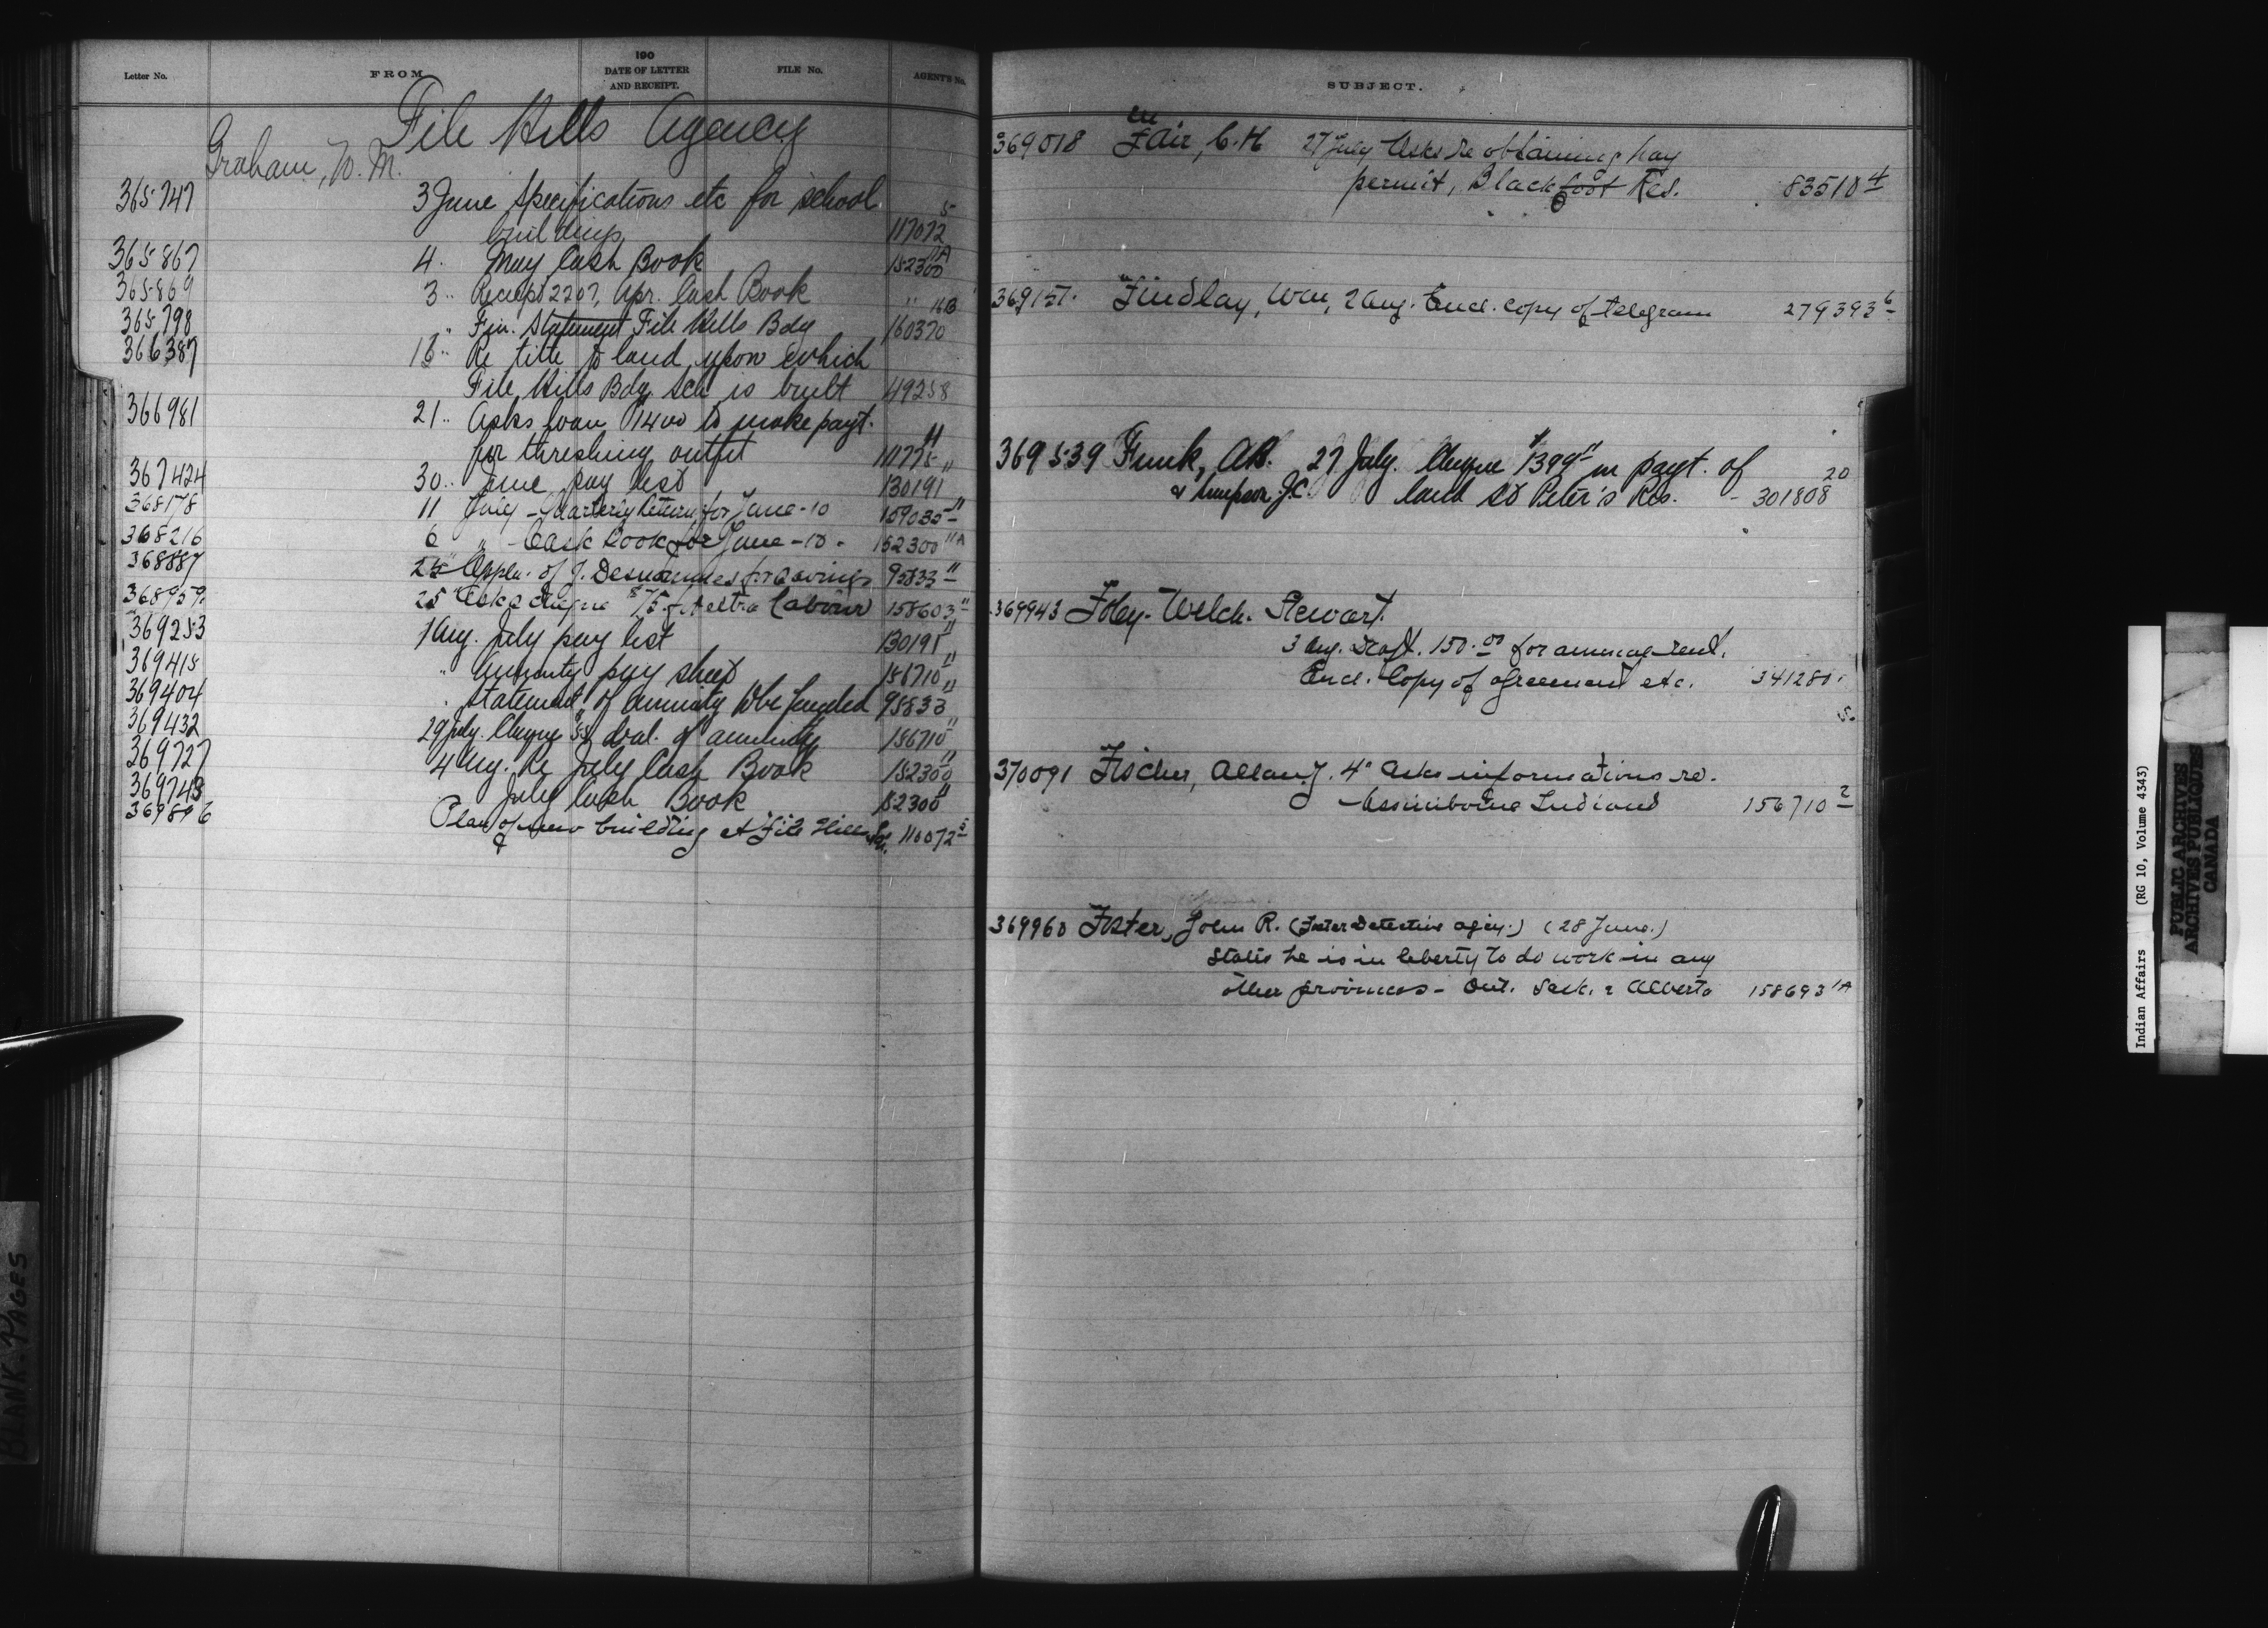 Letter No. FROM 190 DATE OF LETTER AND RECEIPT. FILE No. AGENT'S No.
File Hills Agency
Graham, W. M.
365747 3 June Specifications etc for school
buildings 117072 5
365867 4 May Cash Book 152300 11A
365869 3 " Receipt 2207, Apr. Cash Book " 11B
365798 " Fin. Statement File Hills Bdg 160370
366387 13 " Re title to land upon which
File Hills Bdg Sch is built 49258
366981 21 " Asks loan $1400 to make payt.
for threshing outfit 111775 11
367424 30 " June pay list 130191 "
368178 11 July - Quarterly Return for June-10 159035 11
368216 6 " - Cash Book for June-10- 152300 11A
368887 25 " Appln. of J. Desnommes for savings 95833 11
368959 25 " Asks cheque $75 extra labour 158603 11
369253 1 Aug. July pay list 130191 11
369415 " Annuity pay sheet 156710 11
369404 " Statement of annuity to be funded 95833 11
369432 29 July. Cheque bal. of annuity 156710 11
369727 4 Aug. Re July Cash Book 152300 11
369743 July Cash Book 152300 11
369896 Plan of new building at File Hills 5
SUBJECT.
369018 Fair, C. H 27 July Asks re obtaining hay
permit, Blackfoot Res. 83510 4
369157. Findlay, Wm, 2 Aug. Encl. copy of telegram 279393 6
369539 Funk, A.B. 27 July. Cheque $1399 in payt. of 20
& Simpson J.C land St Peter's Res. - 301808
369943 Foley. Welch. Stewart.
3 Aug. Draft. 150.00 for annual rent.
Encl. Copy of agreement etc. 341280.
5.
370091 Fischer, Allan J. 4" Asks informations re.
Assiniboine Indians 156710 2
369960 Foster, John R. (Foster Detective agcy.) (28 June.)
States he is in liberty to do work in any
other provinces - Ont. Sask. & Alberta 158693 1A
Indian Affairs (RG 10, Volume 4343)
PUBLIC ARCHIVES
ARCHIVES PUBLIQUES
CANADA
BLANK PAGES